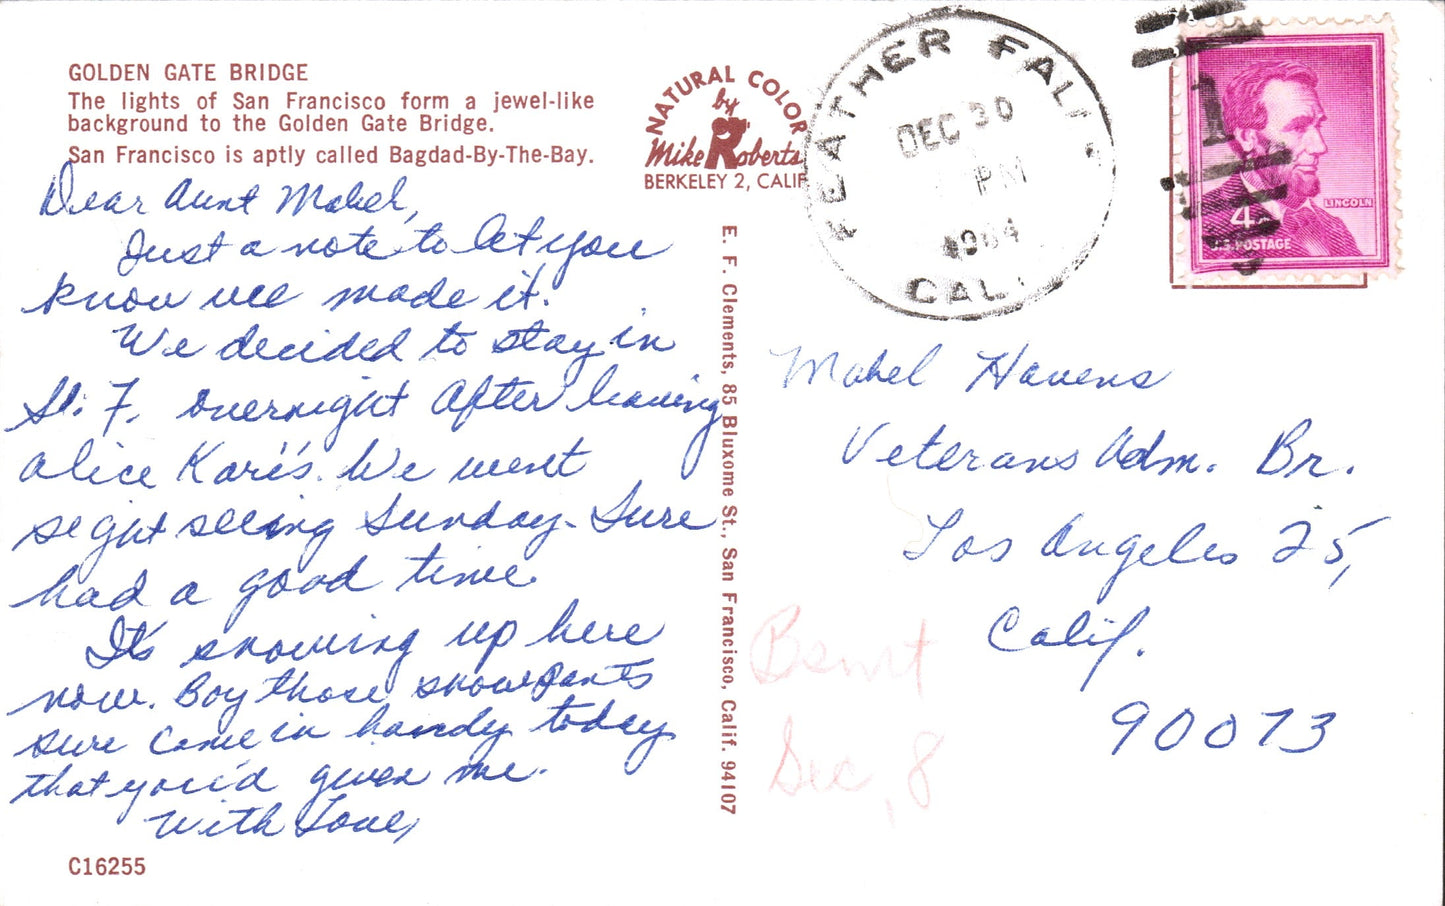 GOLDEN GATE BRIDGE
The lights of San Francisco form a jewel-like
background to the Golden Gate Bridge.
San Francisco is aptly called Bagdad-By-The-Bay.
Dear Aunt Mabel,
Just a note to let you
know we made it.
We decided to stay in
S. F. overnight after leaving
Alice Kari's. We went
sight seeing Sunday. Sure
had a good time.
It's snowing up here
now. Boy those snowpants
sure came in handy today
that you'd given me.
With Love,
C16255
NATURAL COLOR
by
Mike Roberts
BERKELEY 2, CALIF
E. F. Clements, 85 Bluxome St., San Francisco, Calif. 94107
FEATHER FALL
DEC 30
PM
1964
CAL
LINCOLN
4¢
U.S. POSTAGE
Mabel Havens
Veterans Adm. Br.
Los Angeles 25,
Calif.
90073
Bsmt
Sec, 8